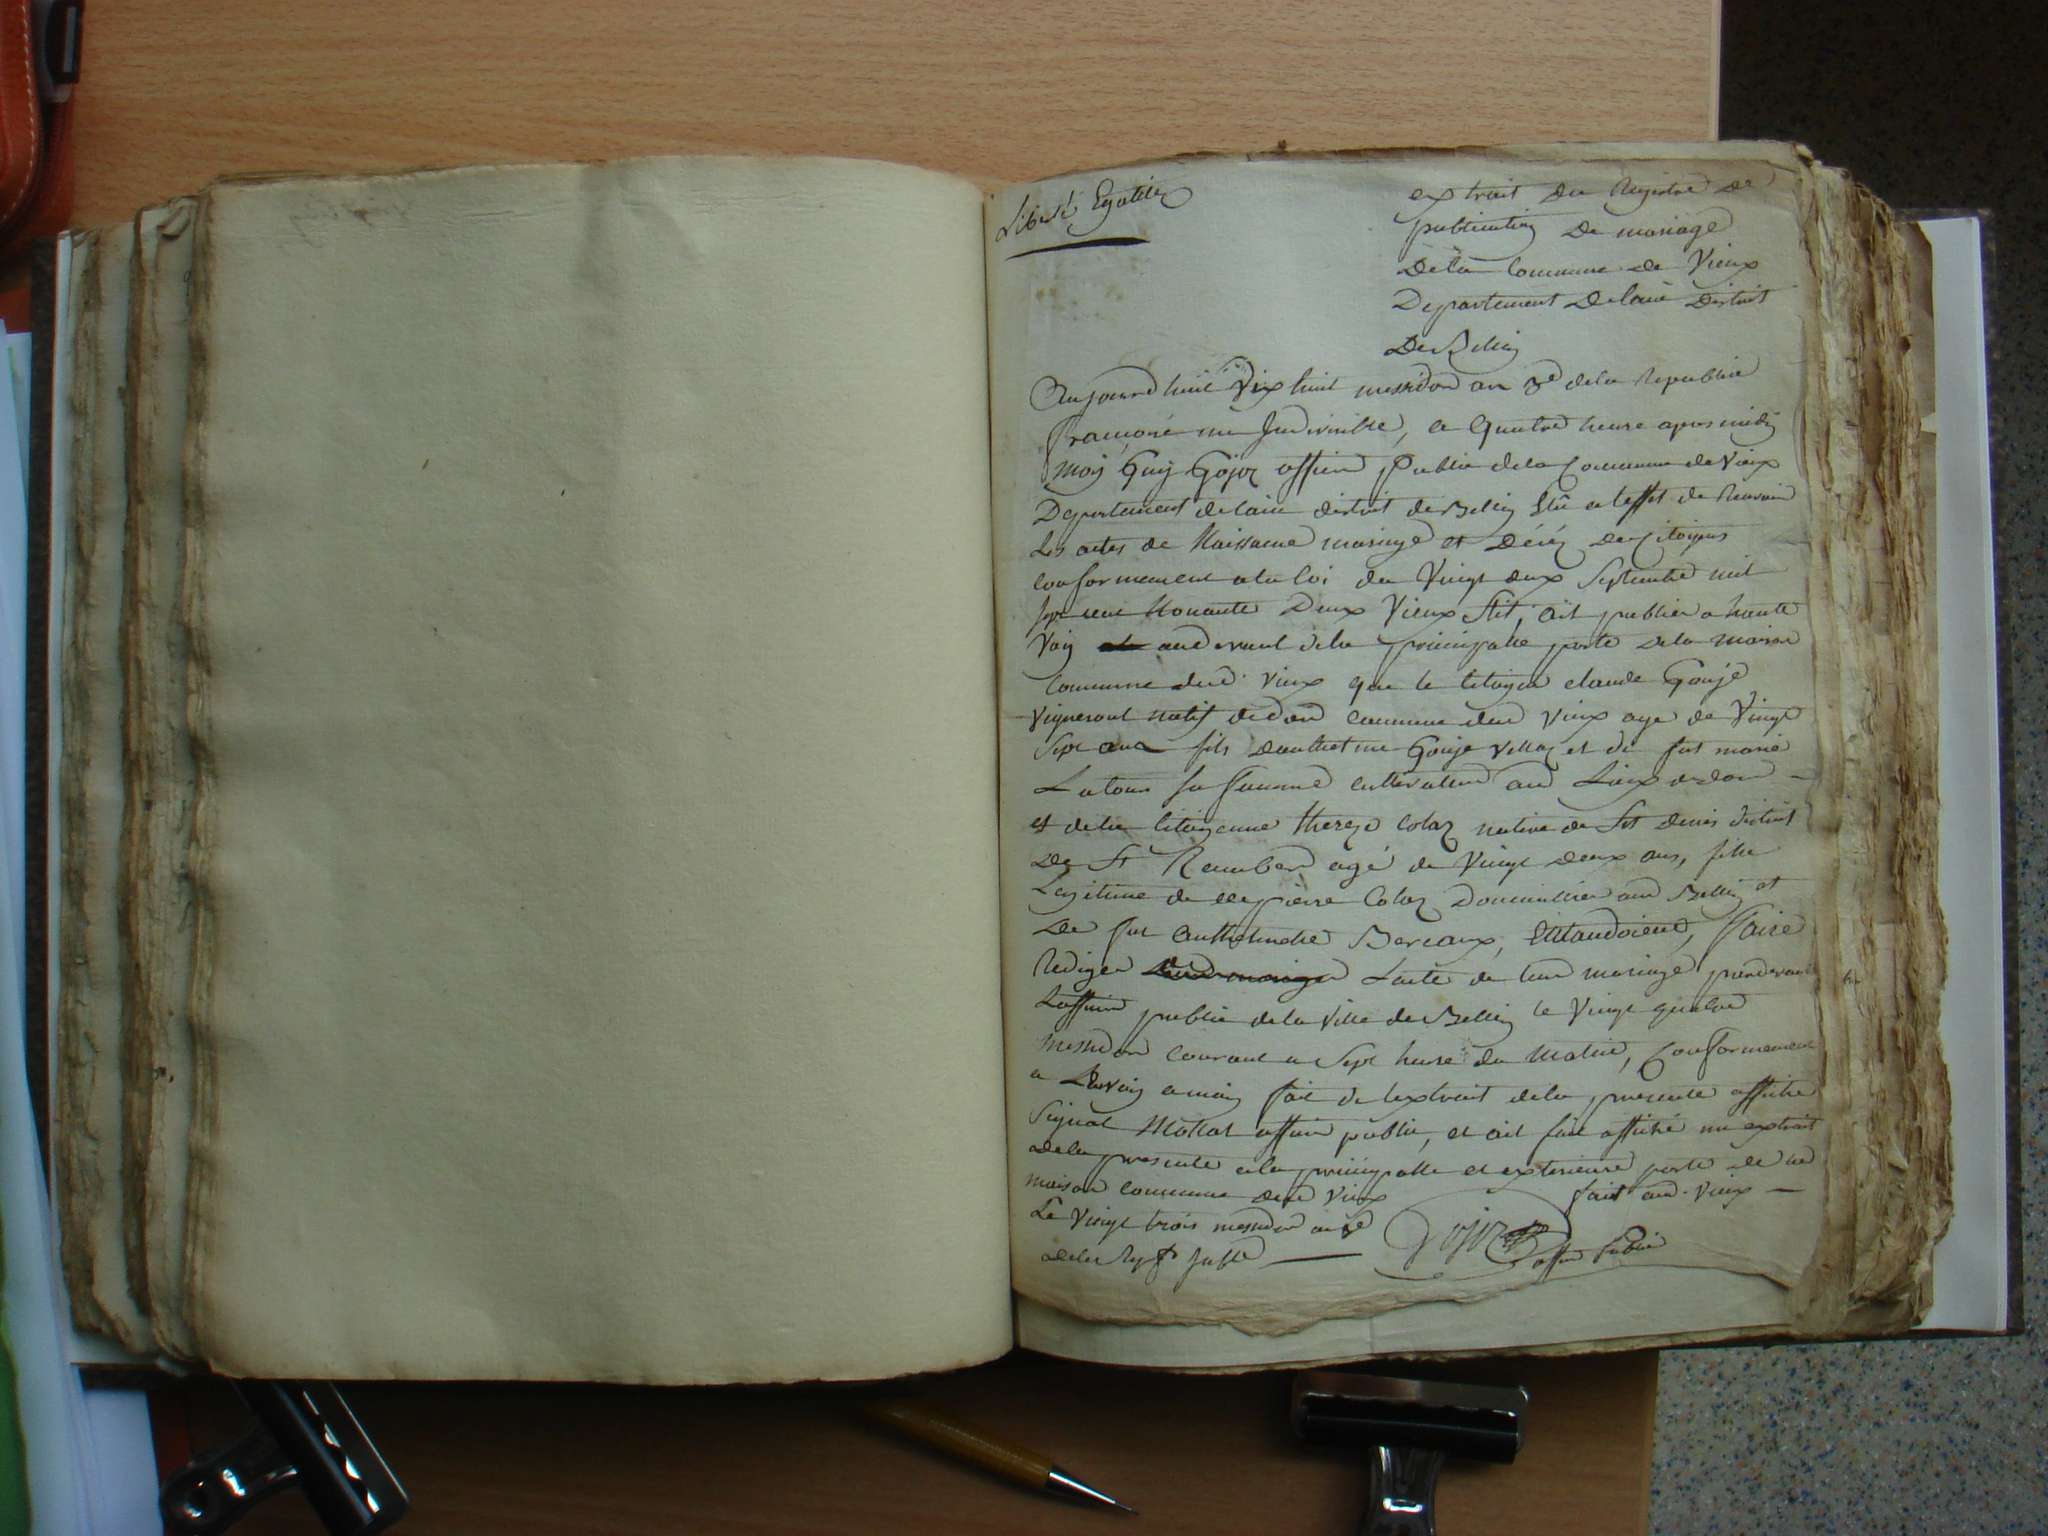 Liberté Egalité
extrait du Registre de
publication de mariage
de la Commune de Vieux
Departement de lain district
De Belley
Aujourdhuit Dix huit messidor an 3e de la Republic
francoise une Indivisible, a Quatre heure apres midy
moy Guy Gojoz officier Public de la Commune de Vieux
Departement de lain district de Belley Elu a leffet de
Les actes de Naissance mariage et Décéz de Citoyens
conformement a la loi du Vingt deux Septembre mil
sept cent Nonante Deux Vieux Stil, ait publier a haute
Voiy au devant de la principalle porte de la maison
Commune dud Vieux que le Citoyen claude Gouje
Vigneront natif dedon commune dud Vieux age de Vingt
Sept ans fils Danthelme Gouje et de fut marie
Latour sa famme cultivateur aud Lieux dedon
et de la Citoyenne thereze Colaz native de St denis district
De St Rember agé de Vingt deux ans, fille
Legitime de pierre Colaz Domicillier aud Belley et
De fut Anthelmelle, Faire
Rediger Lacte de leur mariage pardevant
Lofficier public de la ville de Belley le Vingt quatre
messidor courant a Sept heure du matin, Conformement
a Lavoiy a moiy fait de lextrait de la presente affiche
Signat Mollat officier public, et ait fait affiché un extrait
de la presente a la principalle et exterieure porte de lad
maison commune dud Vieux fait aud Vieux
Le Vingt trois messidor an 3e
de la Rep
Gojoz officier Public